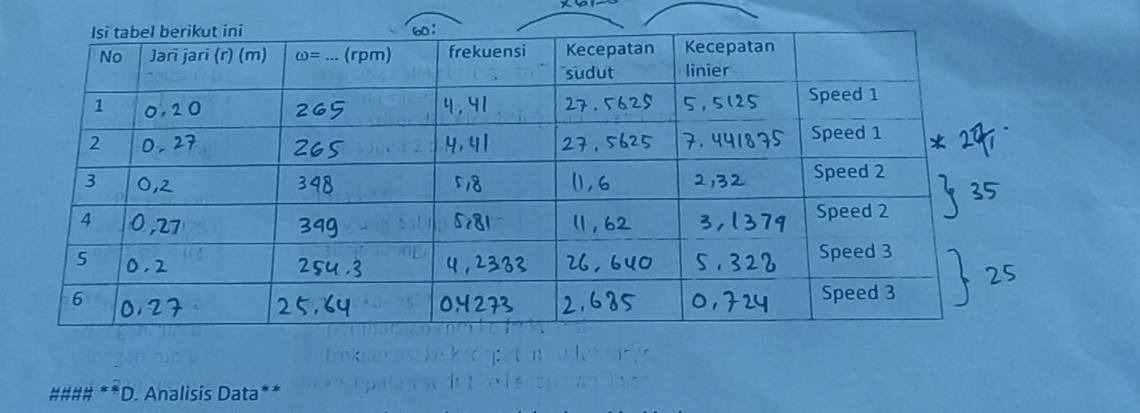 Isi tabel berikut ini
60:
No Jari jari (r) (m) ω= ... (rpm) frekuensi Kecepatan sudut Kecepatan linier
1 0,20 265 4,41 27.5625 5,5125 Speed 1
2 0,27 265 4,41 27,5625 7.441875 Speed 1
3 0,2 348 5,8 11,6 2,32 Speed 2
35
4 0,27 349 5,81 11,62 3,1379 Speed 2
5 0.2 254.3 4,2383 26,640 5.328 Speed 3
25
6 0.27 25.64 0.4273 2.685 0,724 Speed 3
#### **D. Analisis Data**